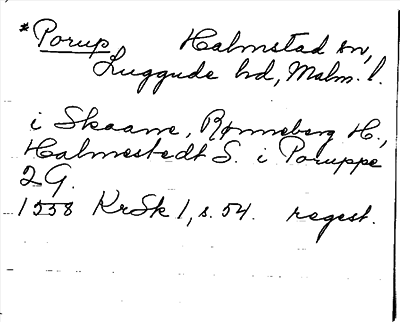 *Porup Halmstad sn,
Luggude hd, Malm. l.
i Skaane, Rønneberg H.,
Halmestedt S. i Poruppe
2 G.
1558 KrSk 1, s. 54. regest.